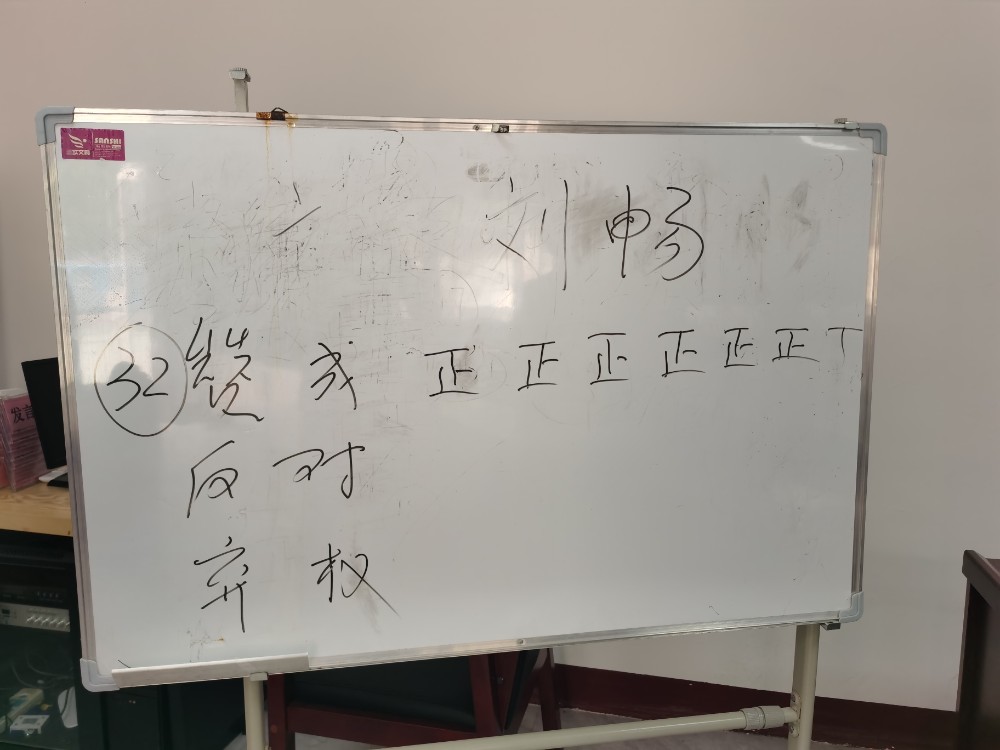 SANSHI
刘畅
32 赞成 正正正正正正丅
反对
弃权
发言